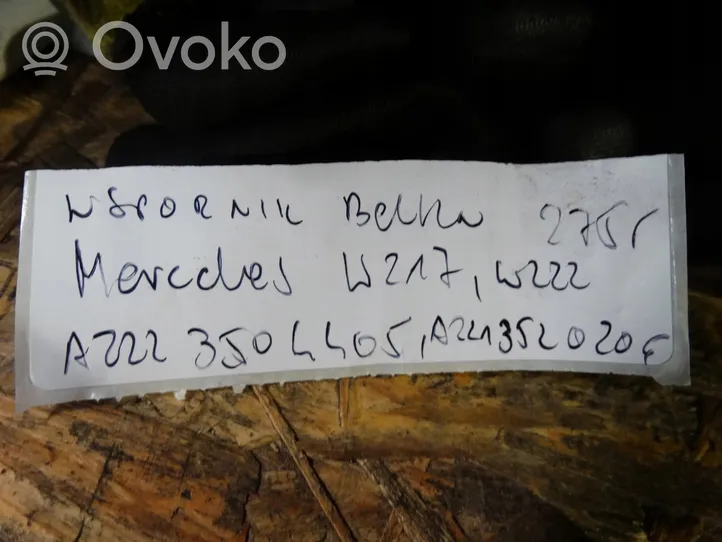 Ovoko
WSPORNIK Belka 275r
Mercedes W217, W222
A222 350 4405, A2213520206